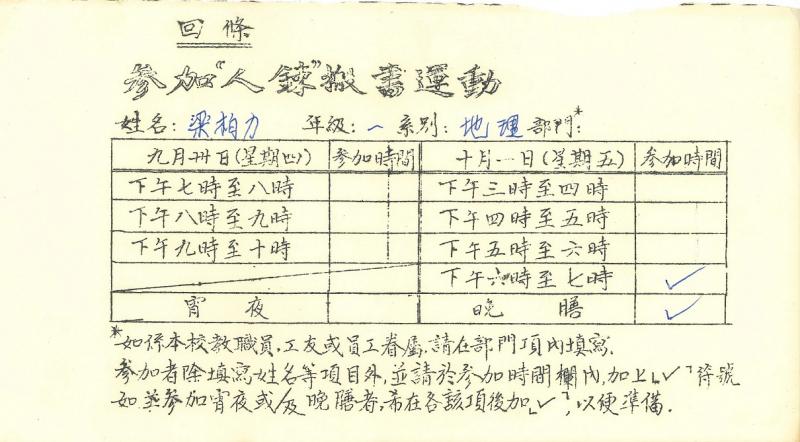 回條
參加“人鍊”搬書運動
姓名：梁柏力 年級：一 系別：地理 部門：*
九月卅日(星期四) 參加時間 十月一日(星期五) 參加時間
下午七時至八時 下午三時至四時
下午八時至九時 下午四時至五時
下午九時至十時 下午五時至六時
下午六時至七時 ✓
宵夜 晚膳 ✓
*如係本校教職員、工友或員工眷屬，請在部門項內填寫．
參加者除填寫姓名等項目外，並請於參加時間欄內，加上「✓」符號
如並參加宵夜或/及晚膳者，希在各該項後加「✓」，以便準備．